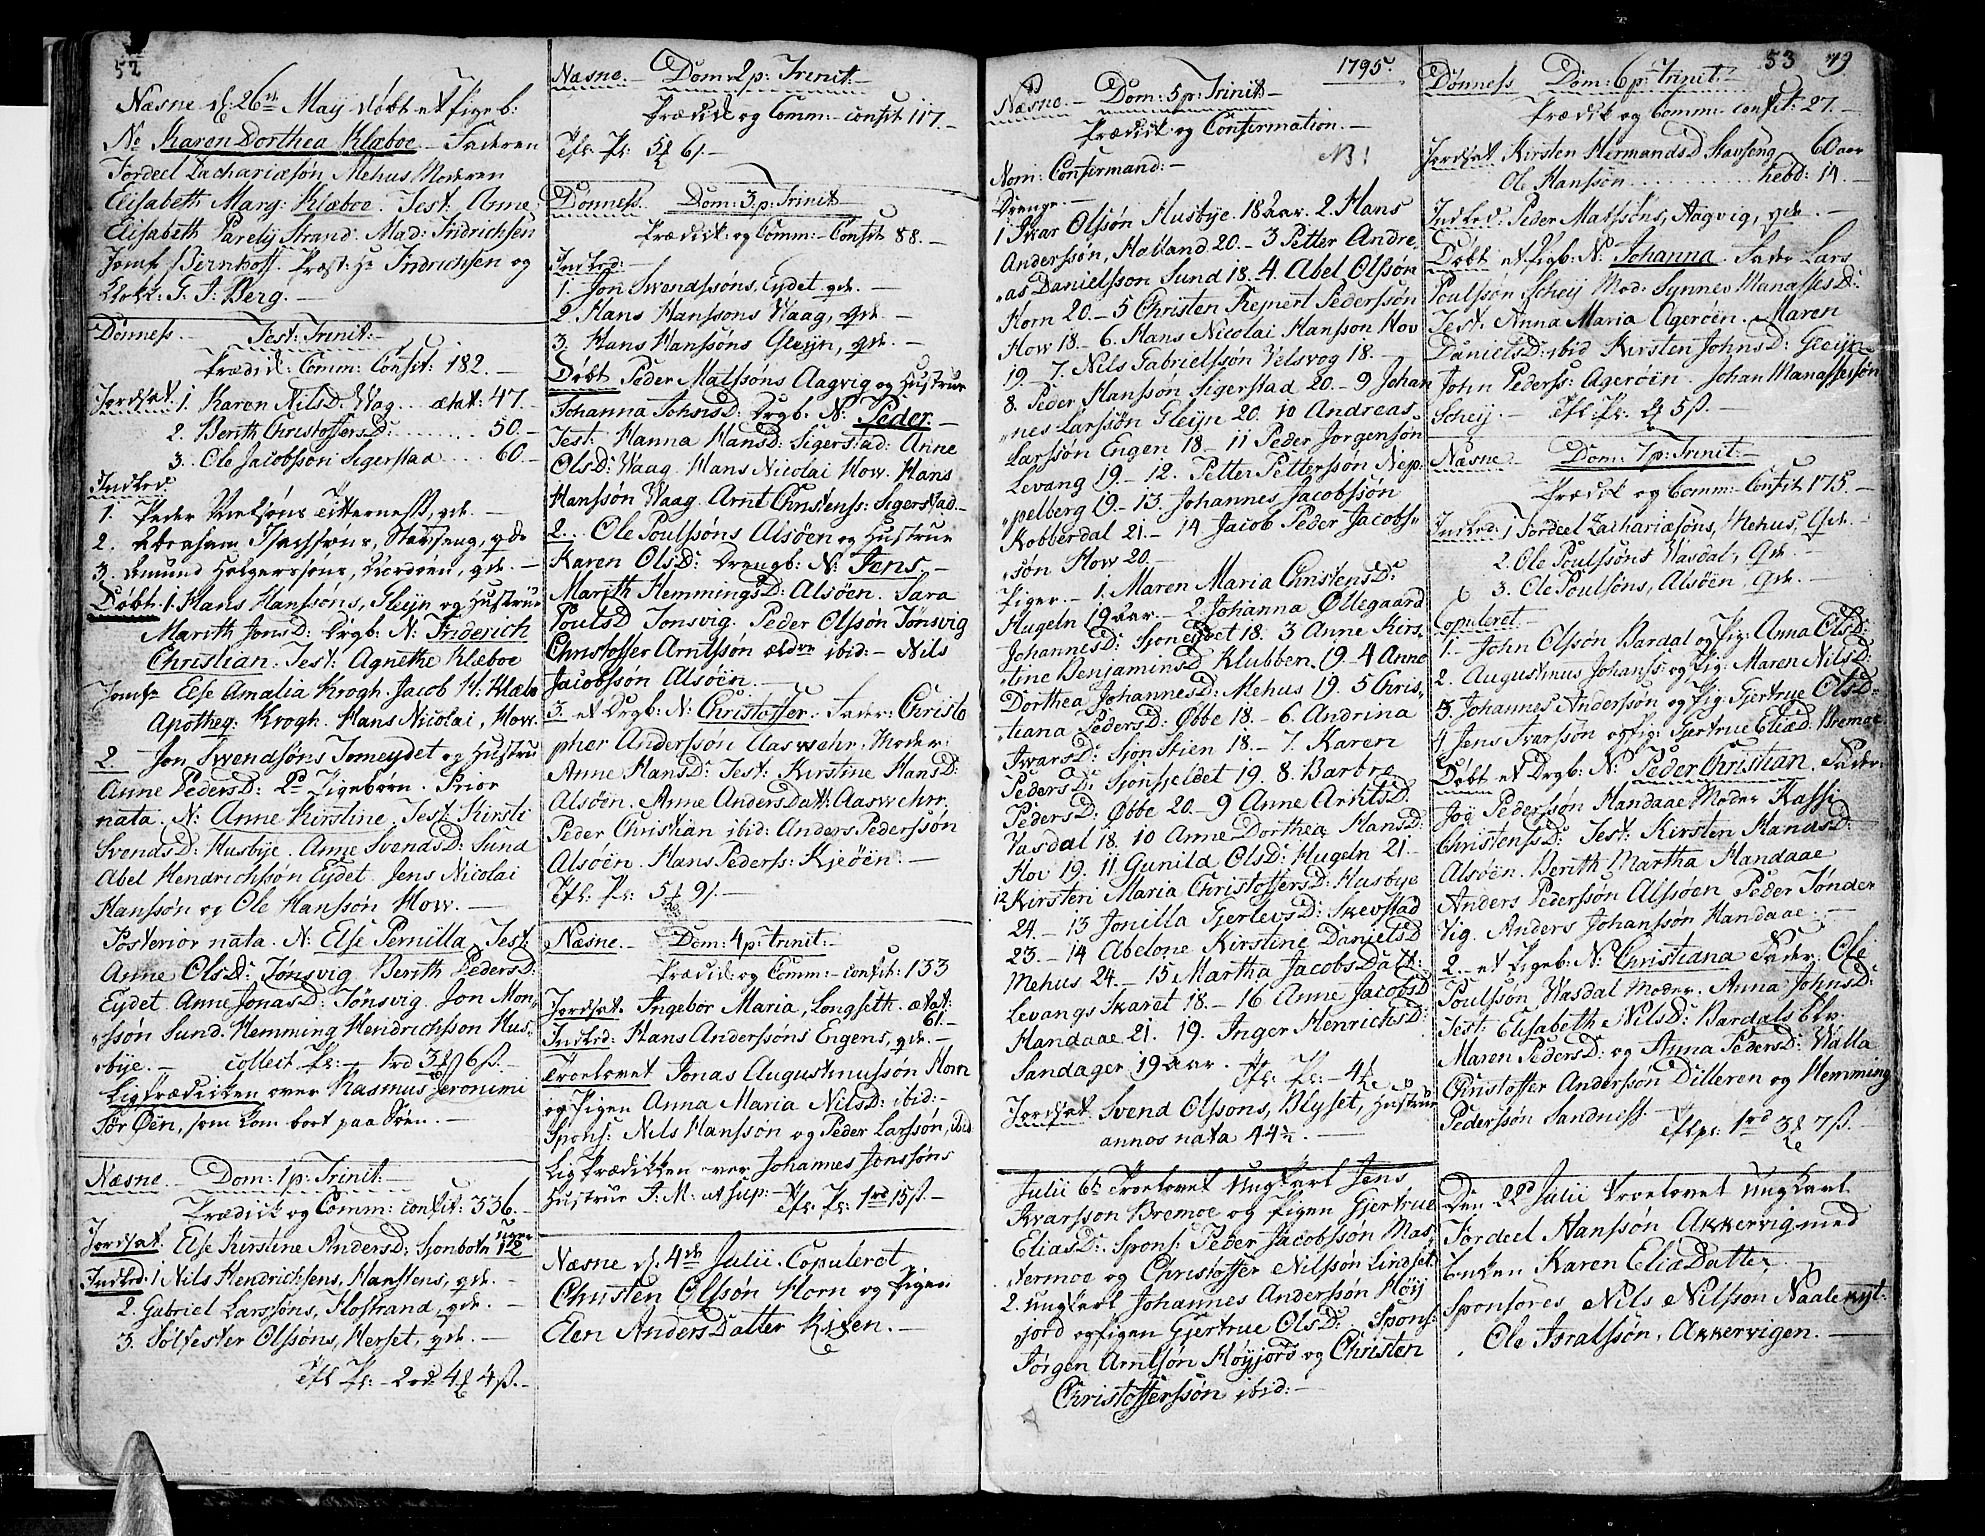 52
Næsne d: 26de Maij døbt et Pigeb:
No Karen Dorthea Klæboe. Faderen
Jordeel Zachariæsøn Mehus Moderen
Elisabeth Marg: Klæboe. Test: Anne
Elisabeth Parely Strand. Mad: Fridrichsen
Jomf Bernhoft. Præst: Hr Fridrichsen og
Klokk: G. J. Berg.
Dønness Fest: Trinit:
Prædik: Comm: Confit: 182.
Jordfæt. 1. Karen Nilsd: Wag... ætat: 47.
2. Berith Christoffersd: ........ 50.
3. Ole Jacobssøn Sigerstad .... 60.
Indled:
1. Peder Nielsøns Titterness, qde.
2. Abraham Isachsøns, Stavseng, qde
3. Amund Holgerssøns, Nordøen, qde.
Døbt. 1. Hans Hanssøns, Gleijn og Hustrue
Marith Jonsd: Drgb: N: Friderich
Christian. Test: Agnethe Klæboe
Jomfr Else Amalia Krogh. Jacob H: Klæbo
Apotheq: Krogh. Hans Nicolai, How.
2 Jon Swendsøns Tomeydet og Hustrue
Anne Pedersd: 2de Pigebørn. Prior
nata. N: Anne Kirstine. Test: Kirsti
Svendsd: Husbye. Anne Svendsd: Sund
Abel Hendrichssøn Eydet. Jens Nicolai
Hanssøn og Ole Hanssøn How.
Posterior nata. N: Else Pernilla. Test:
Anne Olsd: Tønsvig. Berith Pedersd:
Eydet. Anne Jonasd: Tønsvig. Jon Mon-
ssøn Sund. Hemming Hendrichsson Hus-
bye. collect Pr: 1rd 3 6 ß.
Ligprædiken over Rasmus Jeronimi
Sør Øen, som kom bort paa Søen.
Næsne Dom: 1 p: Trinit:
Prædik og Comm: confit: 336.
Jordfæt. Else Kirstine Andersd: Sjonbotn uger 12
Indled: 1 Nils Hendrichsens, Hanssens, qde.
2. Gabriel Larssøns, Flostrand, qde.
3. Solfester Olssøns, Herset, qde.
Tfl Pr: 2 rd: 4 4 ß.
Næsne. Dom: 2 p: Trinit:
Prædik og Comm: confit 117.
Tfl: Pr: 5 6 ß.
Dønness. Dom: 3 p: Trinit
Prædik: og Comm: Confit 88.
Indled:
1. Jon Swendssøns, Eydet qde.
2. Hans Hanssøns Waag, qde.
3. Hans Hanssøns Gleijn, qde.
Døbt Peder Matssøns Aagvig og Hustrue
Johanna Johnsd: Drgb: N: Peder.
Test: Hanna Hansd: Sigerstad: Anne
Olsd: Waag. Hans Nicolai How. Hans
Hanssøn Waag. Arnt Christenss: Sigerstad.
2. Ole Poulssøns Alsøen og Hustrue
Karen Olsd: Drengb: N: Jens.
Marith Hemmingsd: Alsøen. Sara
Poulsd Tonsvig. Peder Olssøn Tønsvig
Christoffer Arntssøn ældre ibid: Nils
Jacobssøn Alsøen.
3. et Drgb: N: Christoffer. Fader: Christo
pher Anderssøn Aaswehr. Moder:
Anne Hansd: Test: Kirstine Hansd:
Alsøen. Anne Andersdatt: Aaswehr.
Peder Christian ibid: Anders Pederssøn
Alsøen. Hans Pederss: Kjeøen
Tfl: Pr: 5 9 ß.
Næsne. Dom: 4 p: Trinit:
Prædik og Comm: confit: 133
Jordfæt. Ingebor Maria, Longseth. ætat: 61.
Indled: Hans Anderssøns Engens, qde.
Troelovet Jonas Augustinussøn Horn
og Pigen Anna Maria Nilsd: ibid:
Spons: Nils Hanssøn og Peder Larssøn, ibid
Ligprædiken over Johannes Jonssøns
Hustrue T. M. ut sup: Tfl: Pr: 1rd 15 ß.
Næsne d: 4de Julii. Copuleret
Christen Olssøn Horn og Pigen
Elen Anders Datter Rixen.
1795.
Næsne. Dom: 5 p: Trinit
Prædik og Confirmation.
NB!
Nom: Confirmand:
Drenge.
1 Ivar Olssøn Husbye. 18 Aar. 2. Hans
Anderssøn, Halland 20. 3 Petter Andre-
as Danielsson Sund 18. 4. Abel Olssøn
Horn 20. 5 Christen Rejnert Pederssøn
How 18 6. Hans Nicolai Hansson Hov
19. 7. Nils Gabrielssøn Velsvog 18.
8. Peder Hanssøn Sigerstad 20 9 Johan
nes Larssøn Gleijn 20. 10 Andreas
Larssøn Engen 18 11 Peder Jorgensøn
Levang 19 12. Petter Petterssøn Nep-
pelberg 19 13. Johannes Jacobssøn
Kobberdal 21. 14 Jacob Peder Jacobs-
søn How 20.
Piger. 1. Maren Maria Christensd:
Hugeln 19 aar. 2. Johanna Øllegaard
Johannesd: Sjoneydet 18. 3 Anne Kirs-
tine Benjaminsd Klubben. 19 4 Anne
Dorthea Johannesd: Mehus 19. 5 Chris-
tiana Pedersd: Øbbe 18. 6. Andrina
Ivarsd: Sjonstien 18. 7. Karen
Pedersd: Sjonsfeldet 19. 8. Barbro
Pedersd: Øbbe 20. 9 Anne Arntsd:
Vasdal 18. 10 Anne Dorthea Hansd:
Hov 19. 11 Gunild Olsd: Hugeln 21.
12 Kirsten Maria Christoffersd: Husbye
24. 13 Jonilla Gjerlevsd: Skevstad
23. 14 Abelone Kirstine Danielsd
Mehus 24. 15 Martha Jacobsdatt:
Levangskaret 18 16 Anne Jacobsd
Handaae 21. 19. Inger Henrichsd:
Sandager 19 aar. Tfl: Pr: 4
Jordfæt. Svend Olssons, Blyset, Hustrue
annos nata 44½.
Julii 6te Troelovet Ungkarl Jens
Ivarsson Bremoe og Pigen Gjertrue
Eliasd: Spons: Peder Jacobssøn Mas-
termoe og Christoffer Nilssøn Lindset.
2. Ungkarl Johannes Anderssøn Høij
jord og Pigen Gjertrue Olsd: Spons:
Jørgen Arntsøn Høyjord og Christen
Christofferssøn ibid:
53 79
Dønness Dom: 6 p: Trinit:
Prædik og Comm: confit: 27.
Jordfæt. Kirsten Hermandsd Stavseng 60 aar
Ole Hanssøn .......... hebd: 14.
Indled: Peder Matssøns, Aagvig, qde.
Døbt et Pigb: N: Johanna. Fader Lars
Poulssøn Scheij Mod: Synnev Manassesd:
Test: Anna Maria Agerøen. Maren
Danielsd: ibid Kirsten Johnsd: Gleijn
John Pederss: Agerøen. Johan Manassessøn
Scheij. Tfl: Pr: 5 ß.
Næsne Dom: 7 p: Trinit:
Prædik og Comm: Confit 175.
Indled: 1 Jordeel Zachariæsøns, Mehus, qde.
2. Ole Poulssøns Wasdal, qde.
3. Ole Poulsøns, Alsøen, qde.
Copuleret
1. John Olssøn Bardal og Pig: Anna Olsd:
2. Augustinus Johanss: og Pig: Maren Nilsd:
3. Johannes Anderssøn og Pig: Gjertrue Olsd:
4 Jens Ivarssøn og Pig: Gjertrue Eliæd. Bremoe
Døbt et Drgb: N: Peder Christian. Fader:
Jog Pederssøn Handaae Moder Kassi
Christenssd: Test: Kirsten Hansd:
Alsøen. Berith Martha Handaae
Anders Pederssøn Alssøen Peder Tønder
Vig. Anders Johanssøn Handaae.
2. et Pigeb: N: Christiana Fader: Ole
Poulssøn Wasdal Moder. Anna Johnsd:
Test: Elisabeth Nilsd: Bardals Elv.
Maren Pedersd: og Anna Pedersd: Walla
Christoffer Anderssøn Dilleren og Hemming
Pederssøn Sandness. Tfl pr: 1rd 3 7 ß.
Den 22d Julii troelovet Ungkarl
Jordeel Hanssøn Akkervig med
Enken Karen Eliædatter
Sponsores Nils Nilsson Naalenyt.
Ole Israelssøn, Akkervigen.